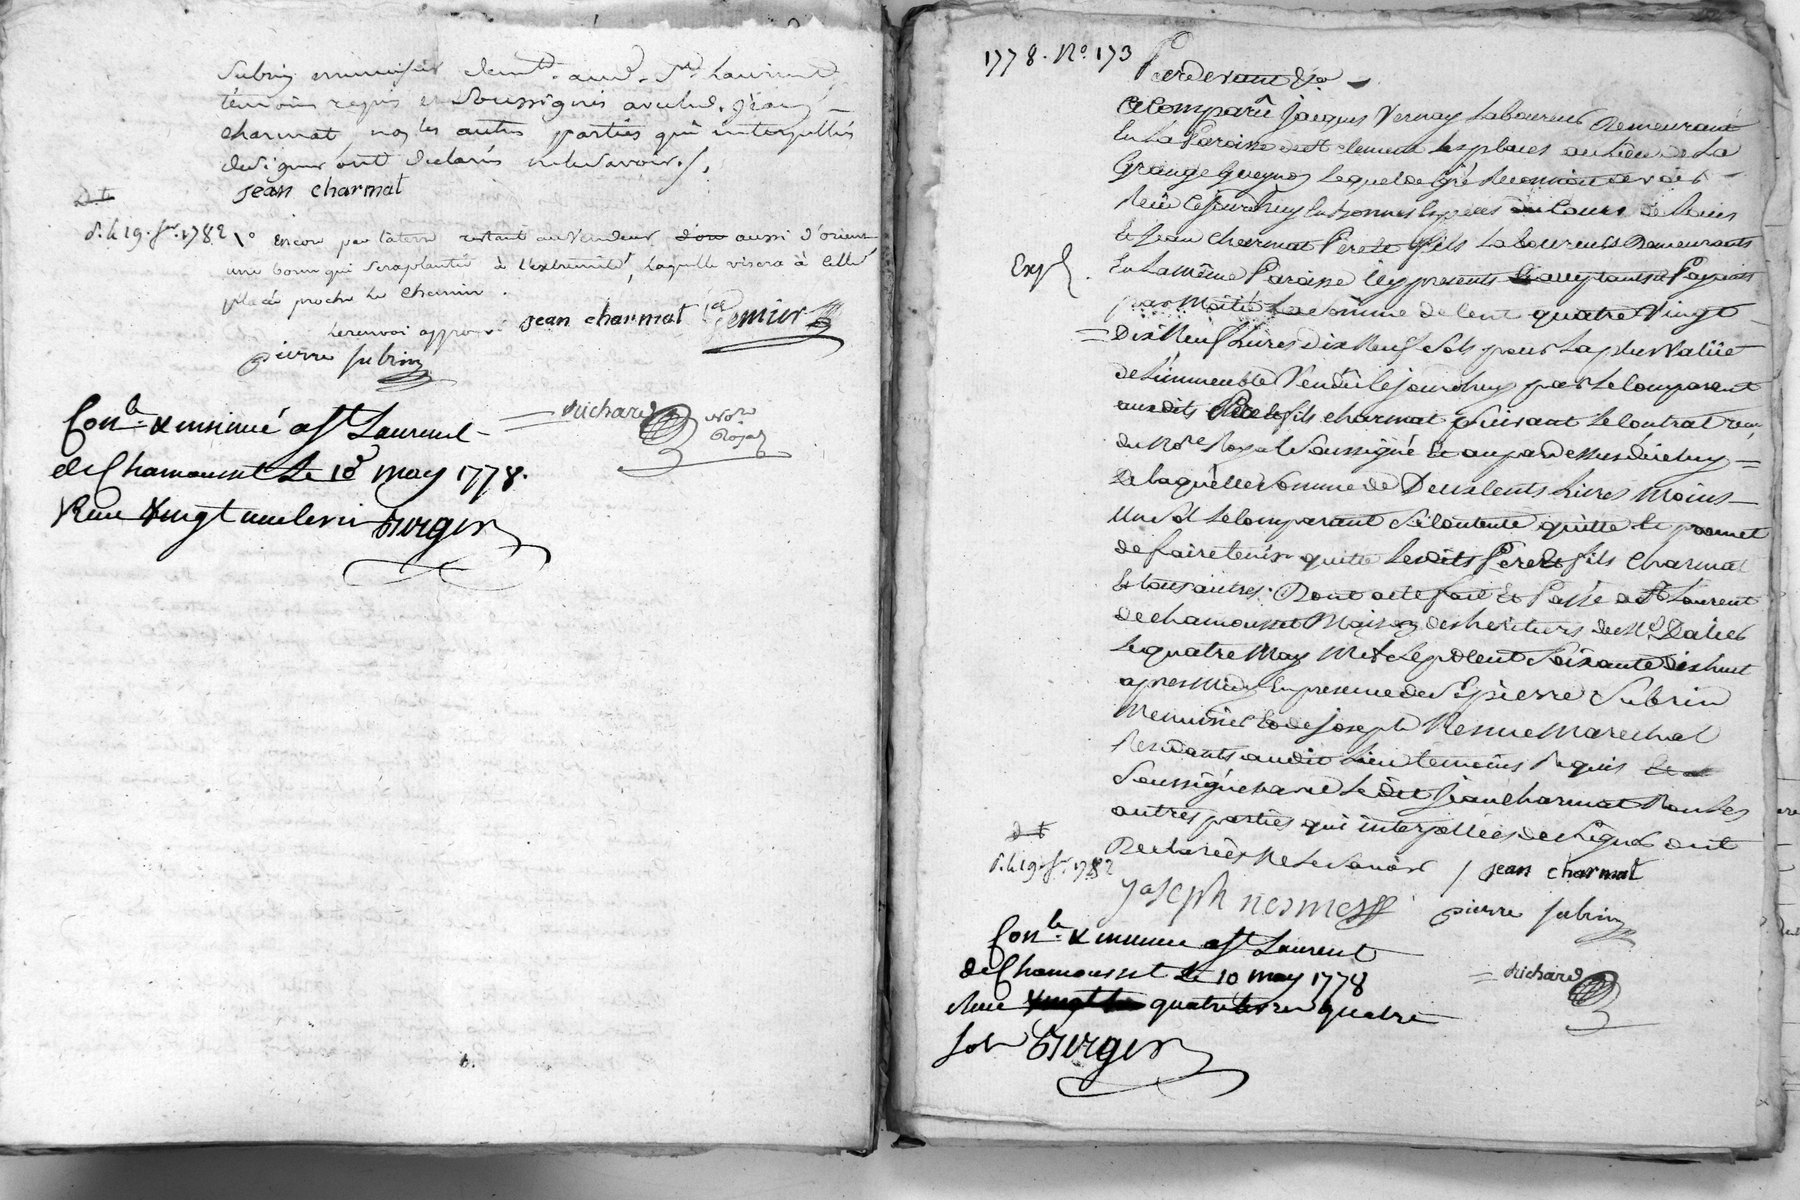 Subrin menuisier demt. aud. St. Laurent
témoins requis et Soussignés avec led. Jean
charmat non les autres parties qui interpellés
de signer ont déclarés ne le savoir ./.
jean charmat
d. le 19. 1782
1° Encore par la terre restant au vendeur d'où aussi d'orient
une borne qui sera plantée à l'extremité, laquelle visera à celle
placée proche le chemin.
le renvoi approuvé jean charmat
pierre subrin
Richard Nore
Royal
Conle. & insinué a St Laurent
de Chamousset Le 10 may 1778.
Reçu vingt une livres Berger
1778. No. 173
Pardevant &a
Est Comparû jacques Vernay Laboureur Demeurant
En La Paroisse de St clement les places au Lieu de La
Grange lequel de gré Reconnoit avoir
Reçû Cejourdhuy En bonnes Espèces du Cours de Louis
Et Jean Charmat Pere et fils Laboureurs Demeurants
En La Même Paroisse icy presents & acceptants & Payants
Exp
par Moitié La somme de Cent quatre Vingt
Dix Neuf Livres dix Neuf Sols pour La plus Valüe
de L'immeuble Vendû Cejourdhuy par Le Comparant
auxdits Pere et fils charmat Suivant Le Contrat reçu
du Nore Royal Soussigné
De laquelle Somme de Deux Cents Livres Moins
Un Sol Le Comparant Se Contente quitte & promet
de faire tenir quitte Lesdits Pere et fils Charmat
Et tous autres. Dont acte fait Et Passé a St Laurent
de chamousset Maison des heritiers de
Le quatre May Mil Sept Cent Soixante Dix huit
apres Midy En presence de Sr pierre Subrin
Menuisier Et de joseph Nesme Marechal
Residants audit Lieu temoins Requis Et
Soussignés avec Le dit Jean Charmat Non Les
autres parties qui interpellées de Signer ont
Declarées Ne Le Savoir / jean charmat
d. le 19. 1782
joseph nesme pierre subrin
Conle. & insinué a St Laurent
de Chamousset Le 10 may 1778
Richard
Reçu quatre livres quatre
sols Berger